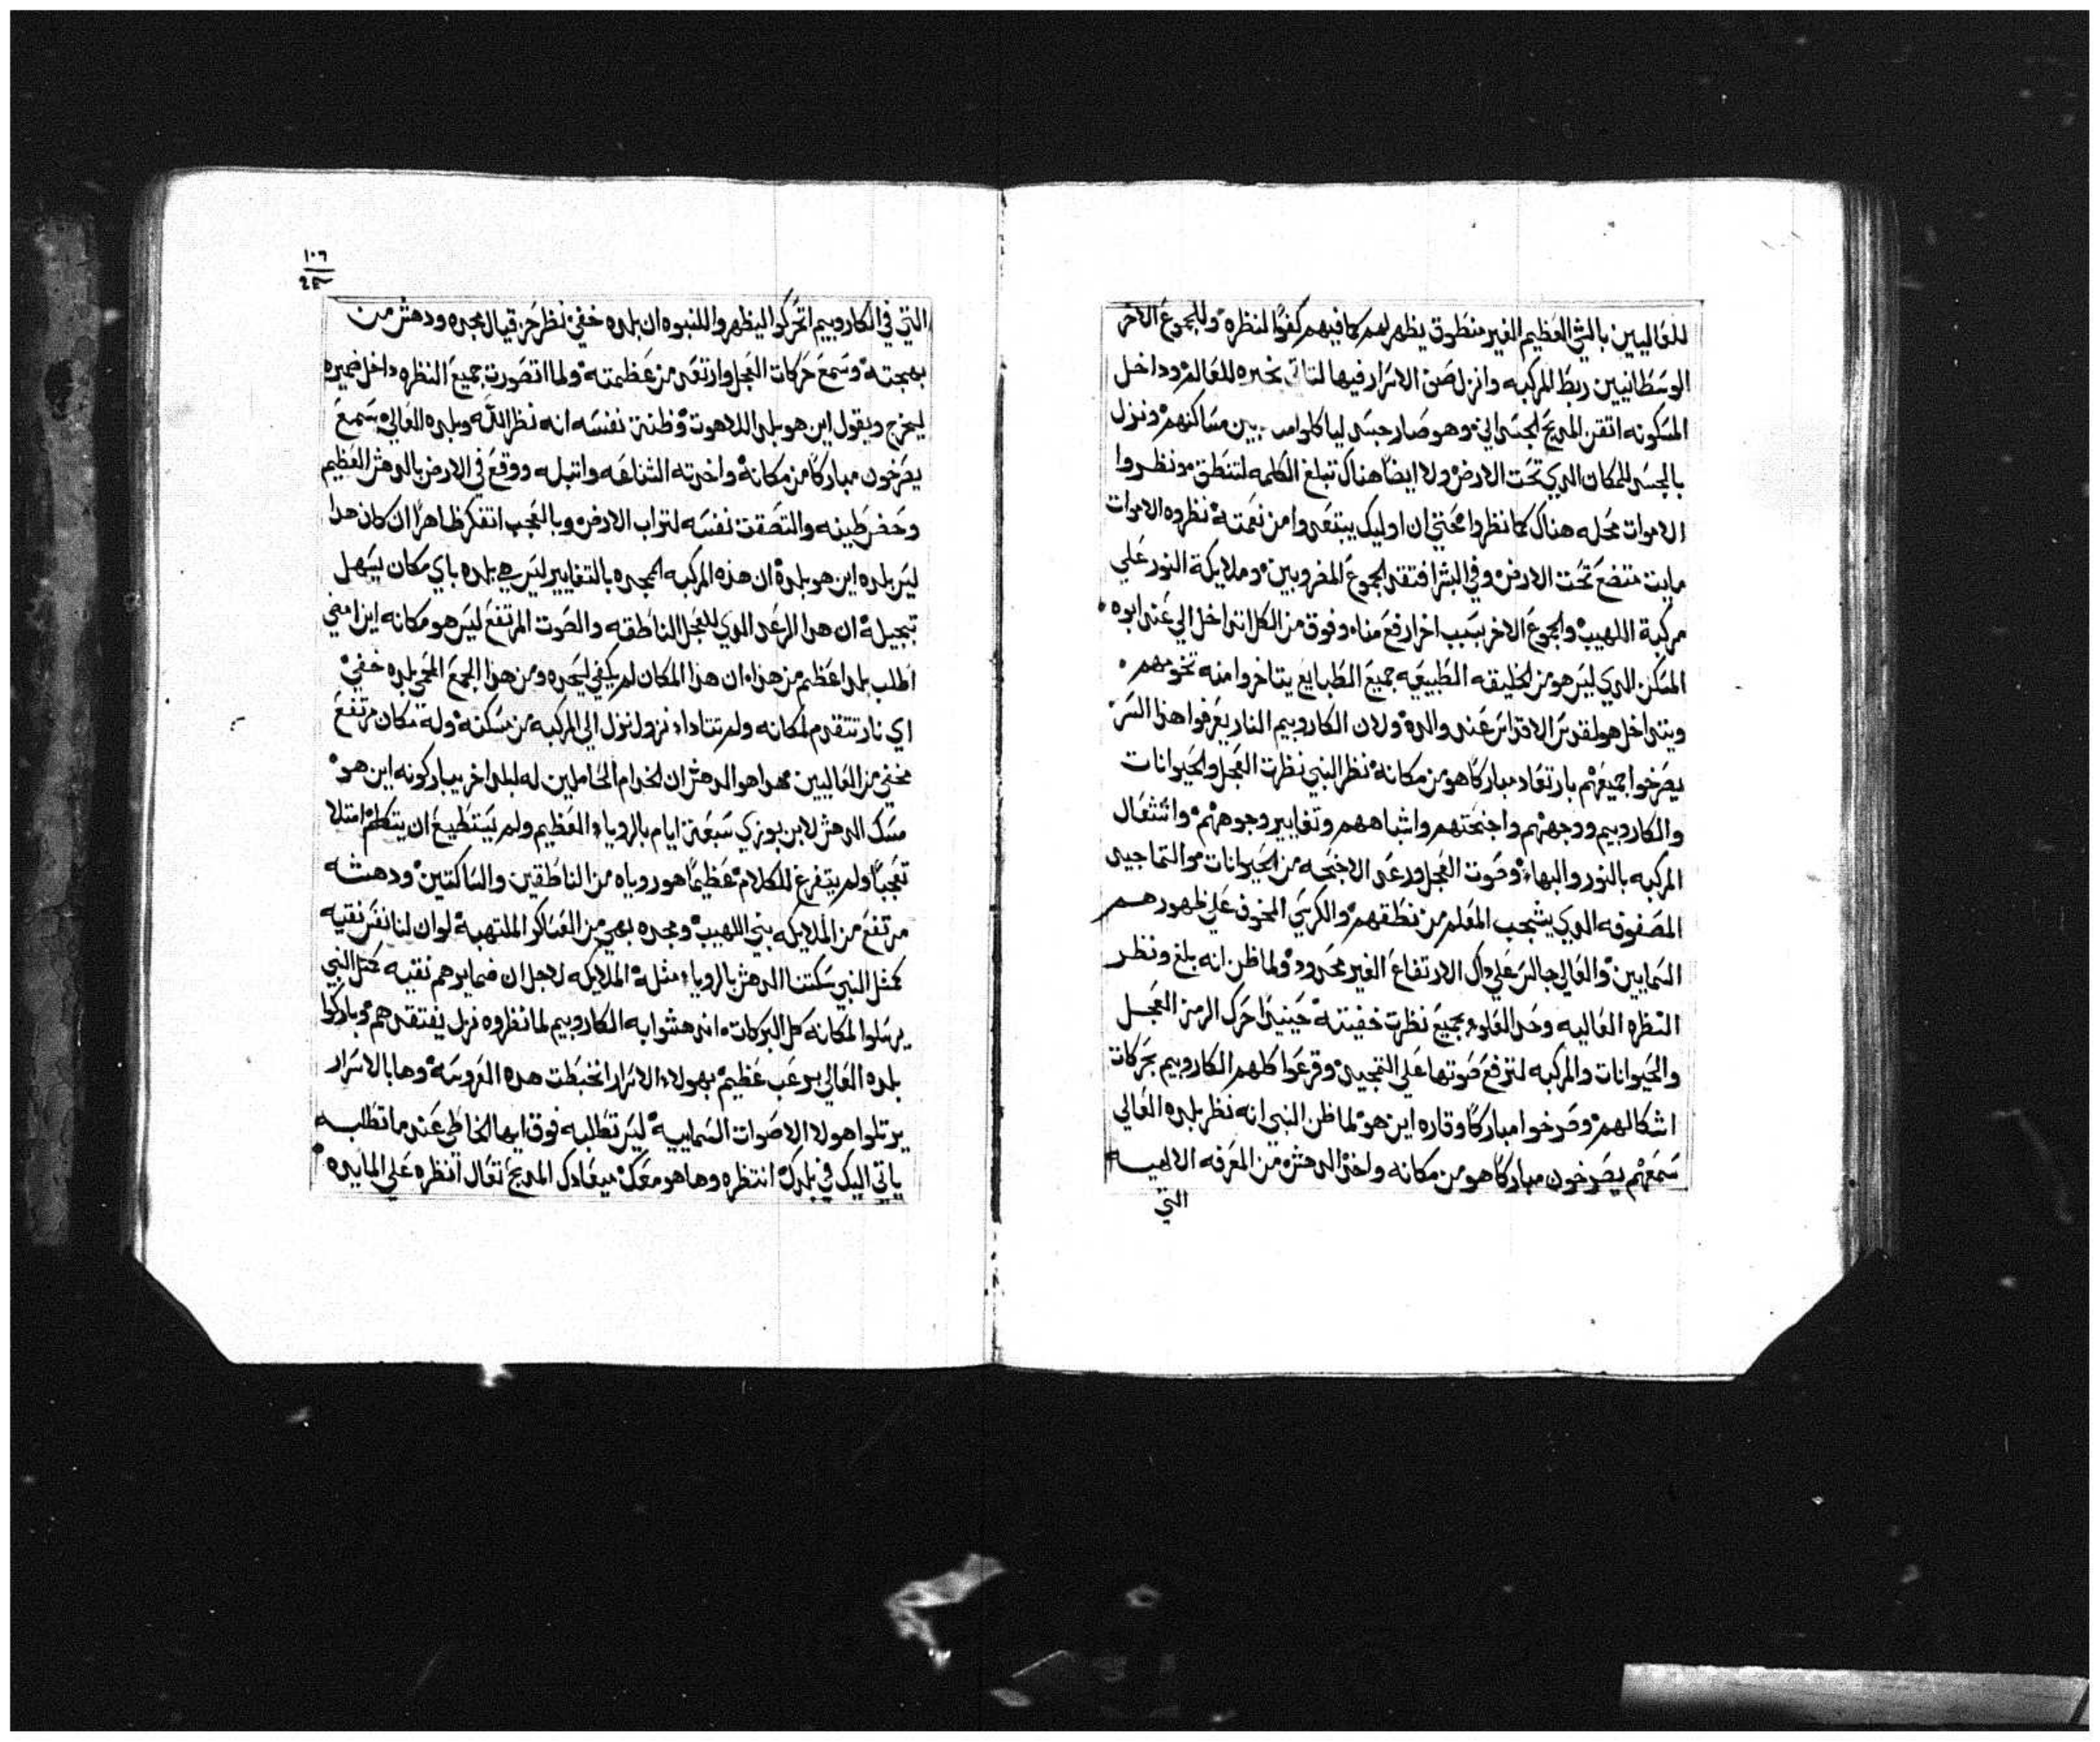 للعاليين بالشي العظيم الغير منطوق يظهر لهم كما فيهم كفوًا لنظره وللجموع الاخر
الوسطانيين ربط المركبه وانزل صف الاسرار فيها لتاتي بخبره للعالم وداخل
المسكونه اتقن المديح الجسداني وهو صار جسدليا بين مساكنهم ونزل
بالجسد للمكان الدي تحت الارض ولا ايضا هناك تبلغ الكلمه لتنطق ونظروا
الاموات محله هناك كما نظروا محتي ان اوليك يبتعدوا من نعمته نظروه الاموات
مايت متضع تحت الارض وفي البشر افتقد الجموع المضروبين وملايكة النور علي
مركبة اللهيب والجموع الاخر بسبب اخر ارفع مناه وفوق من الكل اتداخل الي عند ابوه
المسكن الدي ليس هو من الخليقه الطبيعيه جميع الطبايع يتاخروا منه تخومهم
ويتداخل هو لقدس الاقداس عند والده ولان الكاروبيم النار يعرفوا هذا السر
يصرخوا جميعهم بارتعاد مباركًا هو من مكانه نظر النبي نظرت العجل والحيوانات
والكاروبيم ووجههم واجنحتهم واشباههم وتغايير وجوههم واشتعال
المركبه بالنور والبهاء وصوت العجل ورعد الاجنحه من الحيوانات والتماجيد
المصفوفه الدي يشجب المعلم من نطقهم والكرسي المخوف علي ظهورهم
السمايين والعالي جالس علي داك الارتفاع الغير محدود ولما ظن انه بلغ ونظر
النظره العاليه وحد العلو بجميع نظرت خفيته حينيدا حرك الرمز العجل
والحيوانات والمركبه لترفع صوتها علي التمجيد وقرعوا كلهم الكاروبيم بحركات
اشكالهم وصرخوا مباركًا وقاره اين هو لما ظن النبي انه نظر بلده العالي
سمعهم يصرخون مباركًا هو من مكانه واخد الدهش من المعرفه الالهيه
التي
١٠٦
التي في الكاروبيم اتحركوا ليظهروا للنبوه ان بلده خفي نظر حزقيال مجده ودهش من
بهجته وسمع حركات العجل وارتعد من عظمته ولما اتصورت جميع النظره داخل ضميره
ليخرج ويقول اين هو بلد اللاهوت وظنت نفسه انه نظر الله وبلده العالي سمع
يصرخون مباركًا من مكانه واخدته الشناعه واتبله ووقع في الارض بالدهش العظيم
وحضر طينه والتصقت نفسه لتراب الارض وبالعجب اتفكر ظاهرًا ان كان هدا
ليس بلده اين هو بلده ان هذه المركبه الممجده بالتغايير ليس هي بلده باي مكان يسهل
تبجيله ان هدا الرعد الدي للعجل الناطقه والصوت المرتفع ليس هو مكانه اين امضي
اطلب بلد اعظم من هذا ان هذا المكان لم يكفي ليحده ومن هذا الجمع المحمي بلده خفي
اي نار تتقدم لمكانه ولم تتادا نزول نزل الي المركبه من مسكنه وله مكان مرتفع
مخفي من العاليين مهدا هو الدهش ان الخدام الحاملين له لبلد اخر يباركونه اين هو
مسك الدهش لابن بوزي سبعة ايام بالروياء العظيم ولم يستطيع ان يتكلم امتلا
تعجبًا ولم يتفرغ للكلام عظيمًا هو روياه من الناطقين والساكتين ودهشه
مرتفع من الملايكه بني اللهيب ومجده بهي من العساكر الملتهبة لو ان لنا نفس نقيه
كمثل النبي سكتنا الدهش بالروياء مثله الملايكه لاجل ان ضمايرهم نقيه كمثل النبي
يرسلوا لمكانه كل البركات اندهشوا به الكاروبيم لما نظروه نزل يفتقدهم وباركوا
بلده العالي برعب عظيم بهولاء الاسرار انخبطت هده العروسه وها بالاسرار
يرتلوا هولا الاصوات السماييه ليس تطلبه فوق ايها الخاطي عندما تطلبه
ياتي اليك في بلدك انتظره وها هو معك ميعادك المديح تعال انظره علي المايده